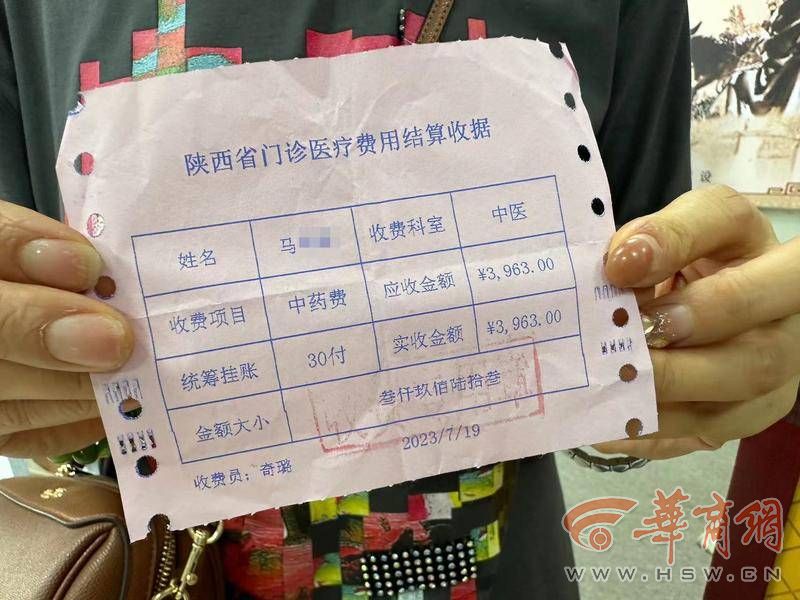 陕西省门诊医疗费用结算收据
姓名 马 收费科室 中医
收费项目 中药费 应收金额 ¥3,963.00
统筹挂账 30付 实收金额 ¥3,963.00
金额大小 叁仟玖佰陆拾叁
2023/7/19
收费员：奇璐
设
華商網
WWW.HSW.CN